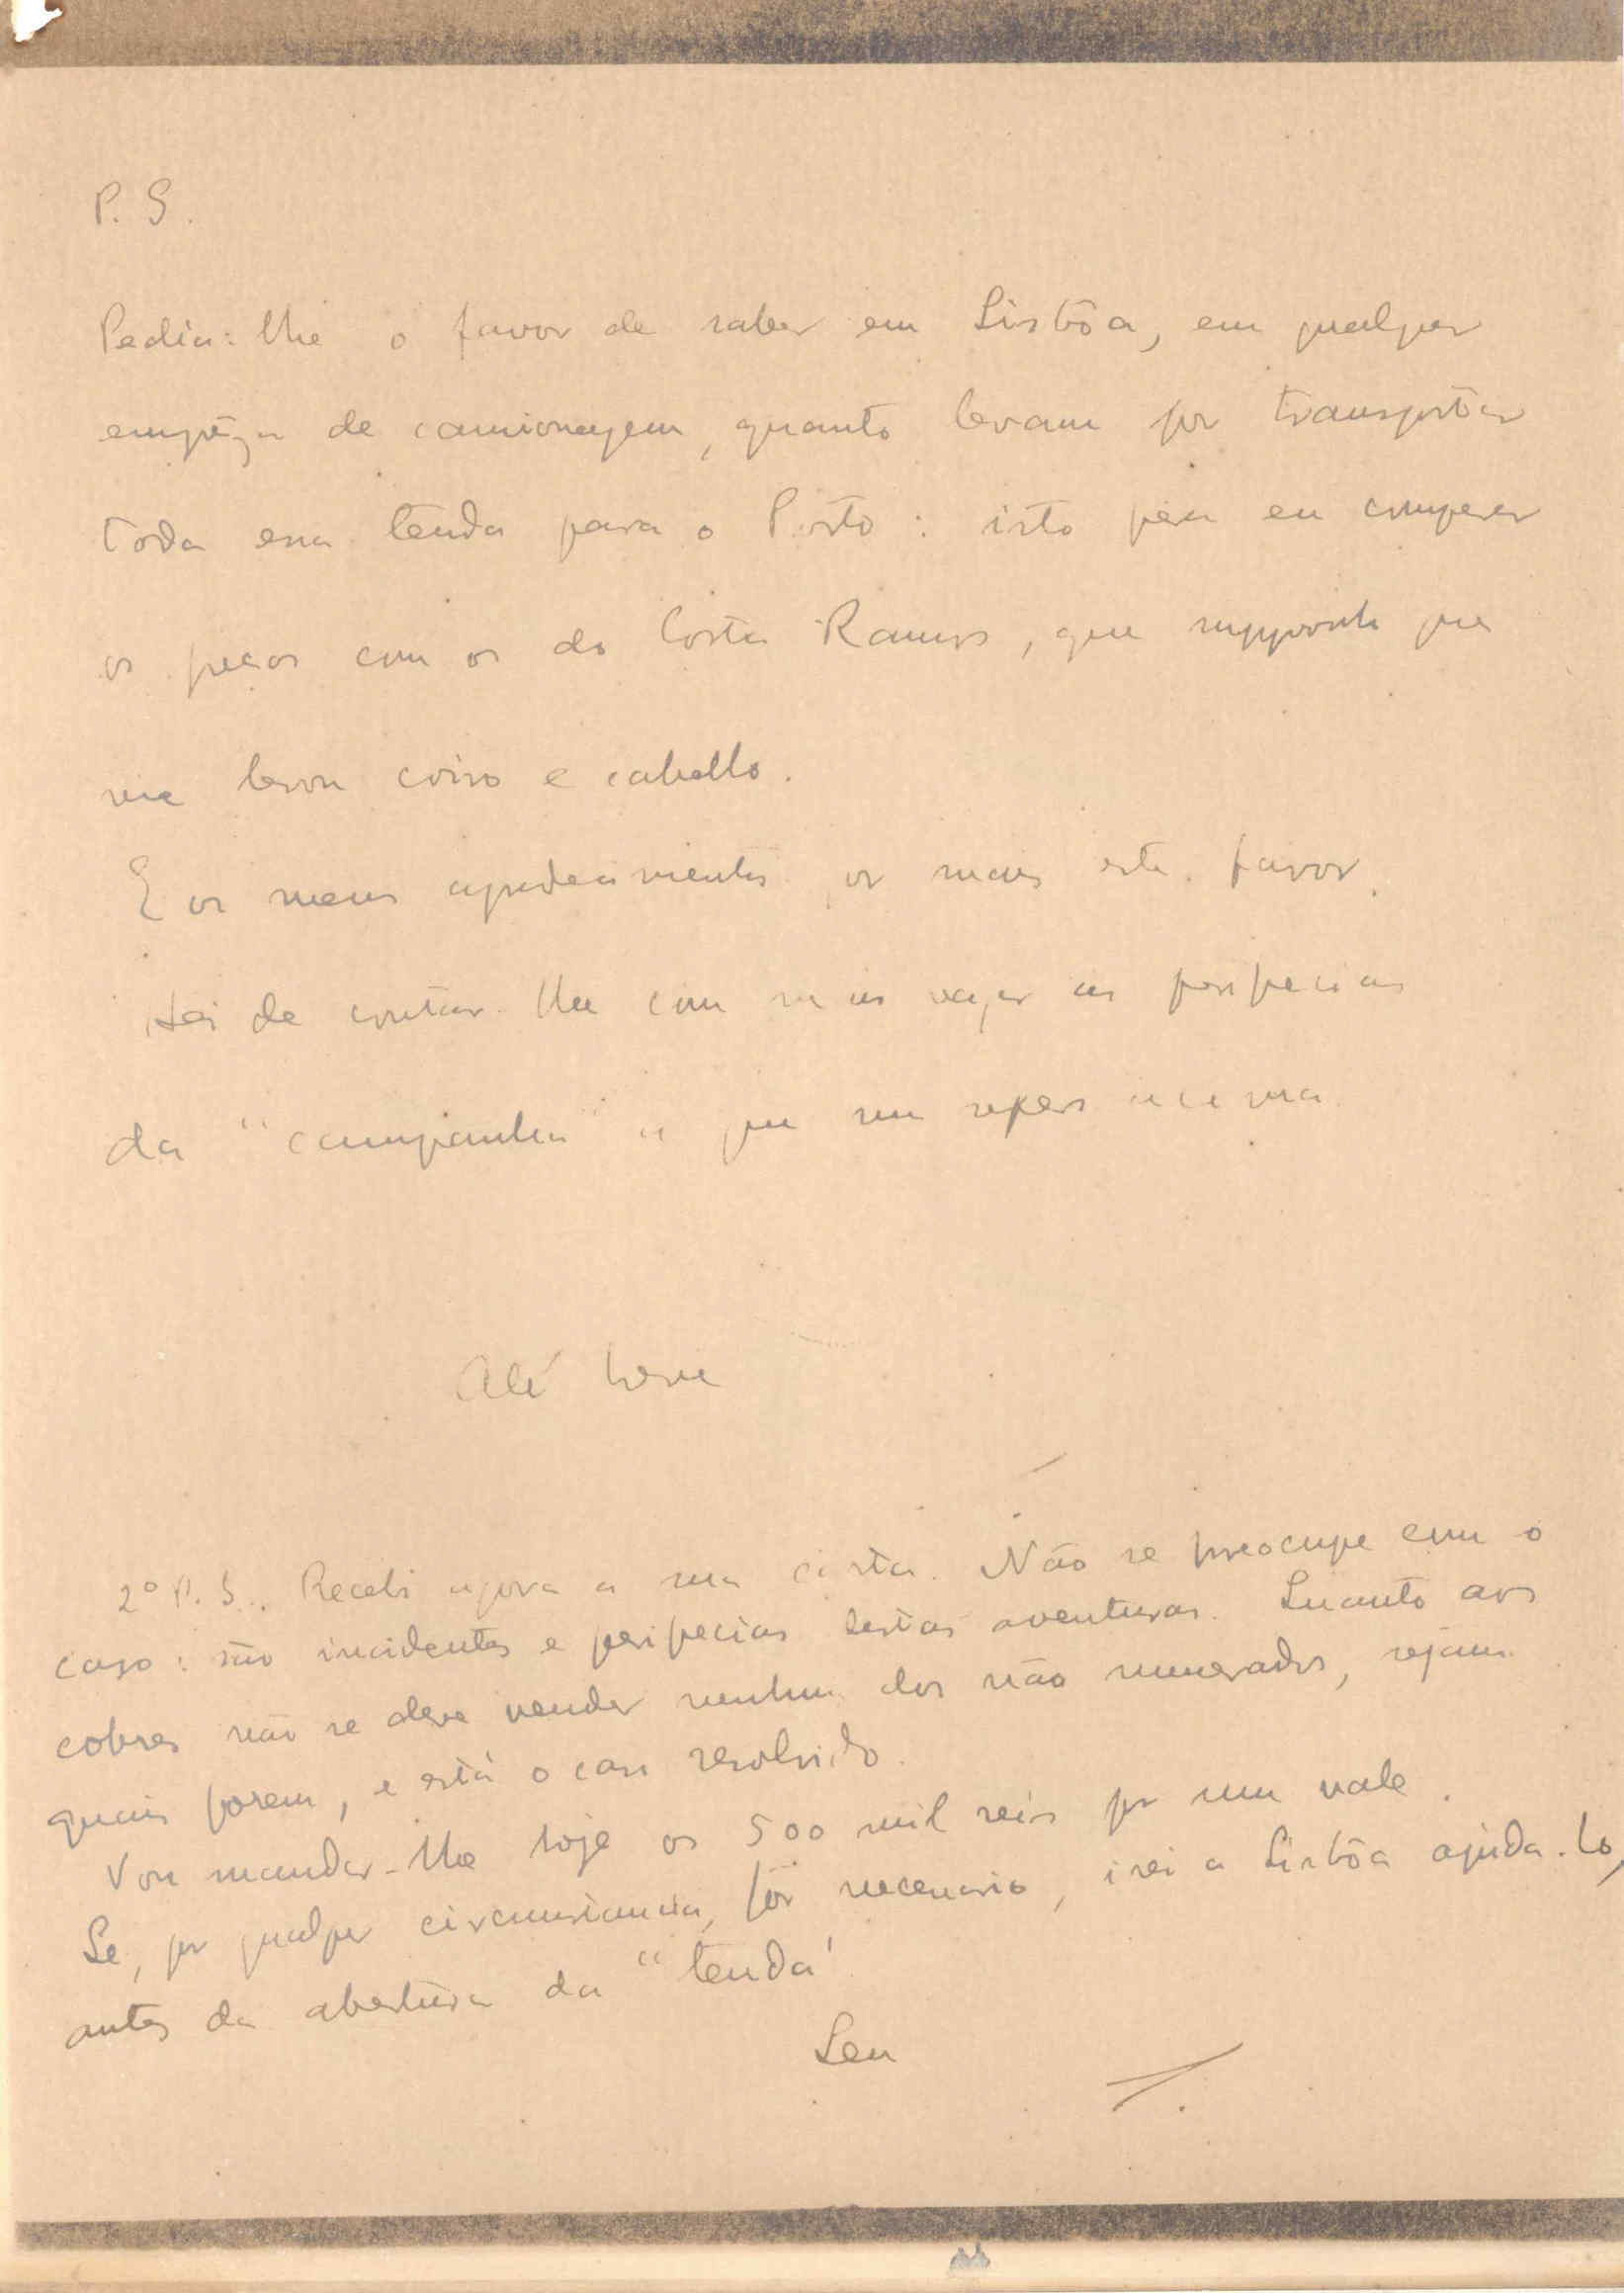 P. S.
Pedia-lhe o favor de saber em Lisbôa, em qualquer
empreza de camionagem, quanto levam por transportar
toda essa tenda para o Porto: isto para eu comparar
os preços com os do Costa Ramos, que supponho que
me levou coiro e cabello.
E os meus agradecimentos por mais este favor.
Hei de contar-lhe com mais vagar as peripecias
da "campanha" a que me refero acima.
Até breve
2º P. S. Recebi agora a sua carta. Não se preocupe com o
caso: são incidentes e peripecias destas aventuras. Quanto aos
cobres não se deve vender nenhum dos não numerados, sejam
quais forem, e está o caso resolvido.
Vou mandar-lhe hoje os 500 mil reis por um vale.
Se, por qualquer circumstancia, fôr necessario, irei a Lisbôa ajuda-lo,
antes da abertura da "tenda"
Seu